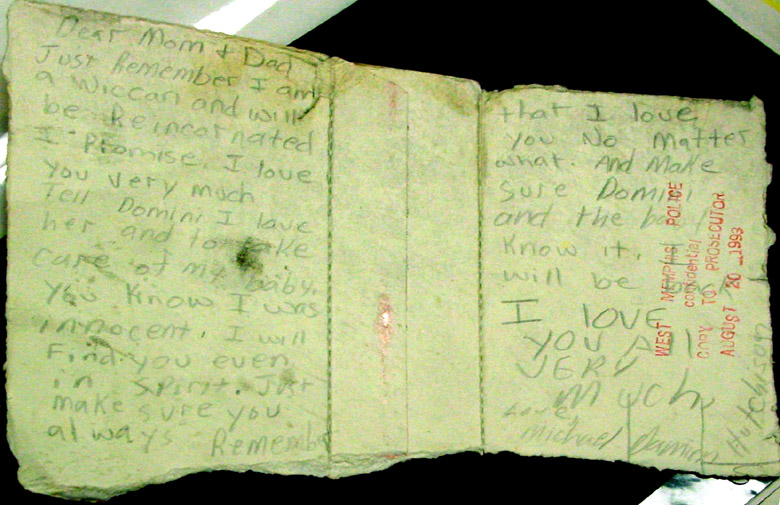 Dear Mom + Dad
Just Remember I am
a Wiccan and will
be Reincarnated
I Promise. I love
you very much
Tell Domini I love
her and to take
care of my baby.
You know I was
innocent. I will
Find you even
in spirit. Just
make sure you
always Remember
that I love
you No Matter
what. And Make
sure Domini
and the
know it.
will be
I LOVE
YOU All
VERY
Much
Love,
Michael Damien
Hutchison
WEST MEMPHIS POLICE
confidential
COPY TO PROSECUTOR
AUGUST 20 1993